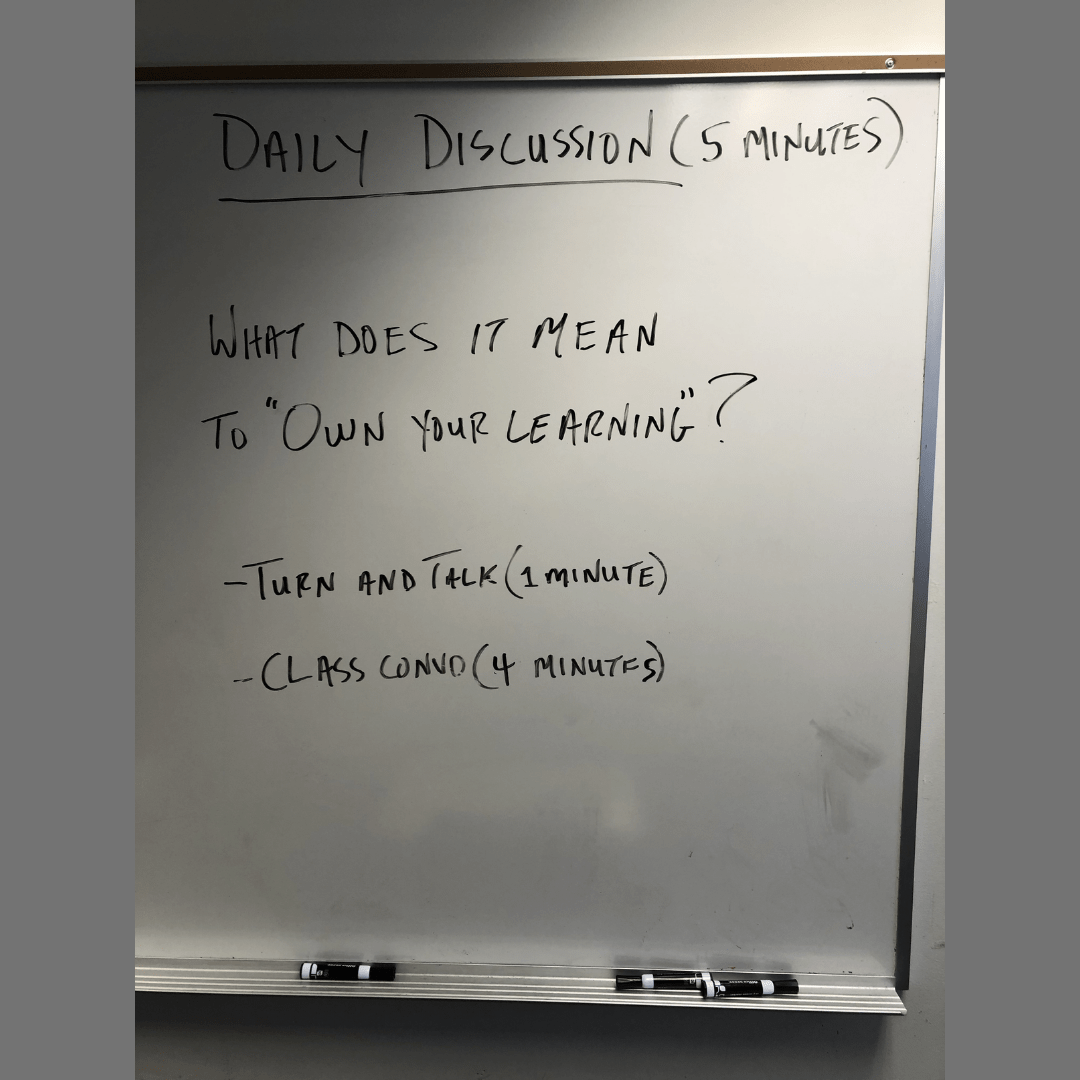 DAILY DISCUSSION (5 MINUTES)
WHAT DOES IT MEAN
TO "OWN YOUR LEARNING"?
- TURN AND TALK (1 MINUTE)
- CLASS CONVO (4 MINUTES)